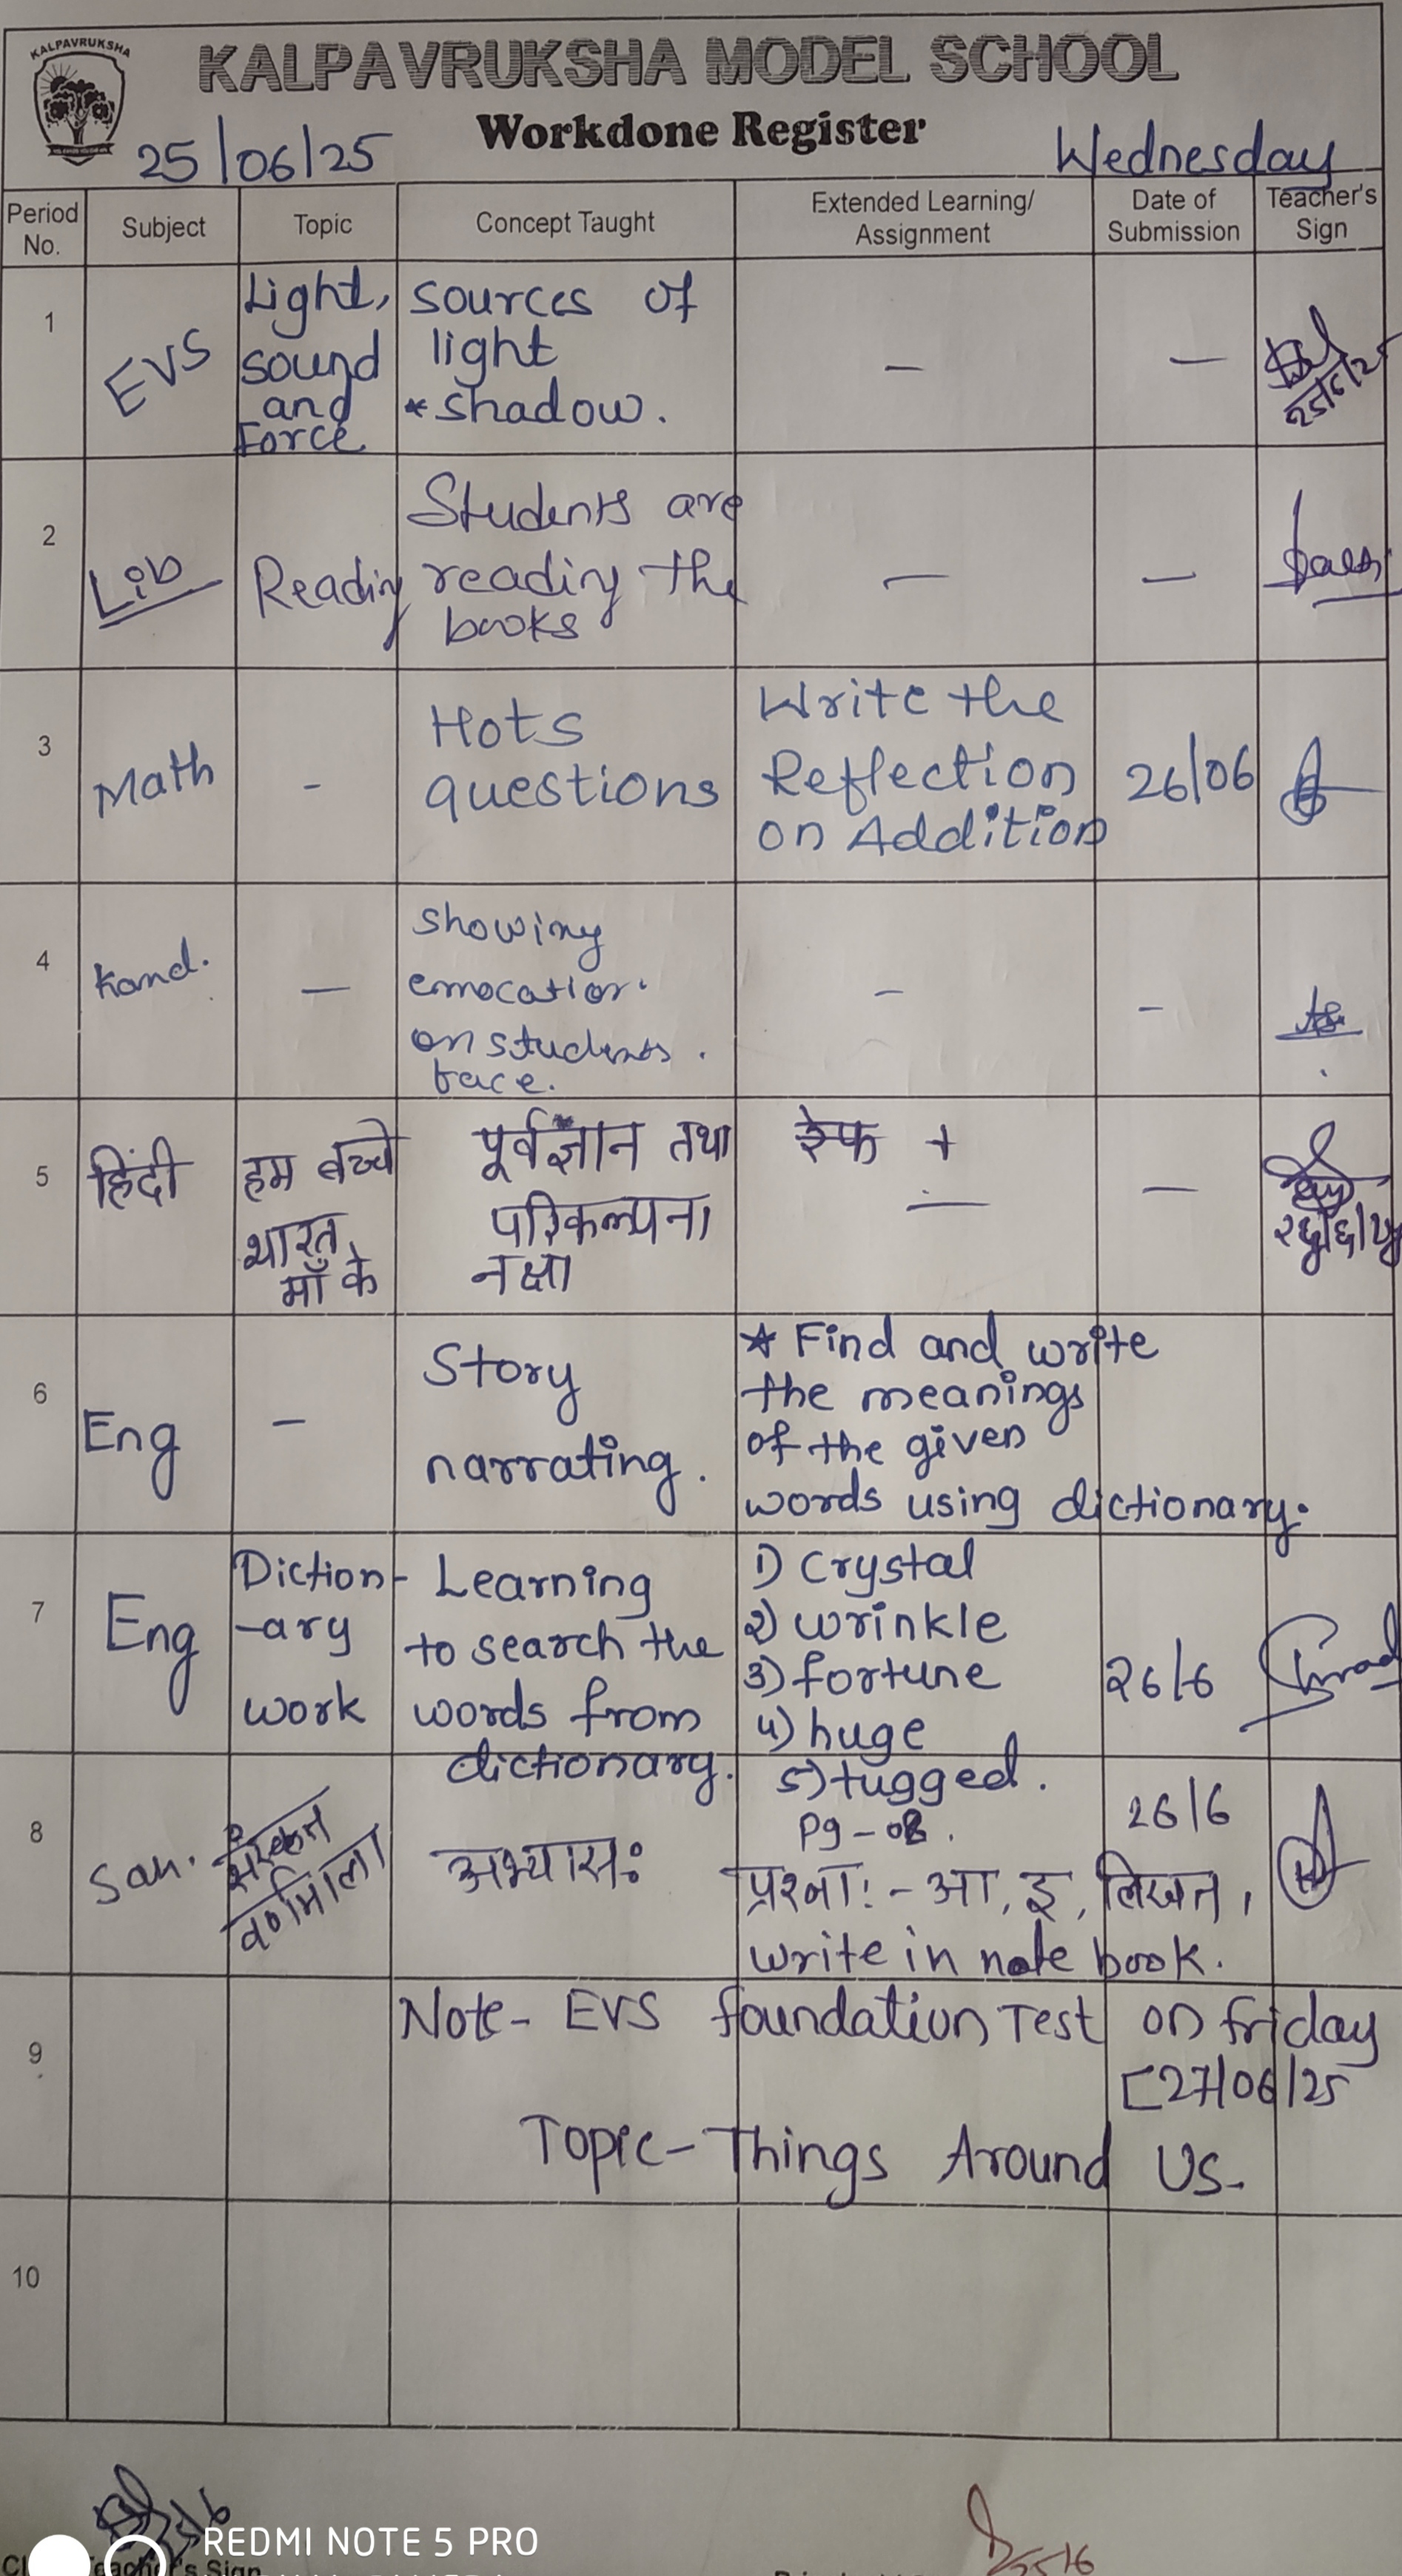 KALPAVRUKSHA
KALPAVRUKSHA MODEL SCHOOL
Workdone Register
25/06/25
Wednesday
Period No. Subject Topic Concept Taught Extended Learning/ Assignment Date of Submission Teacher's Sign
1 EVS Light, sources of
sound light — —
and * shadow.
Force 25/6/25
2 Lib Reading Students are
reading the — —
books
3 Math - Hots Write the
questions Reflection 26/06
on Addition
4 — showing
- -
on students.
face.
5 हिंदी हम बच्चे पूर्वज्ञान तथा +
भारत परिकल्पना — —
माँ के नक्षा
6 Eng - Story * Find and write
narrating. the meanings
of the given
words using dictionary.
7 Eng Diction- Learning 1) Crystal
-ary to search the 2) wrinkle
work words from 3) fortune 26/6
dictionary. 4) huge
5) tugged.
8 San. अभ्यासः Pg - 26/6
प्रश्नाः - आ, इ, लिखत,
write in note book.
9 Note - EVS foundation Test on friday
[27/06/25
Topic - Things Around Us.
10
REDMI NOTE 5 PRO